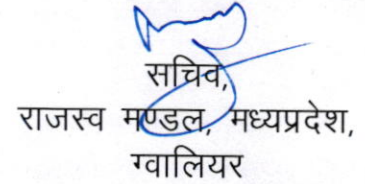 सचिव,
राजस्व मण्डल, मध्यप्रदेश,
ग्वालियर